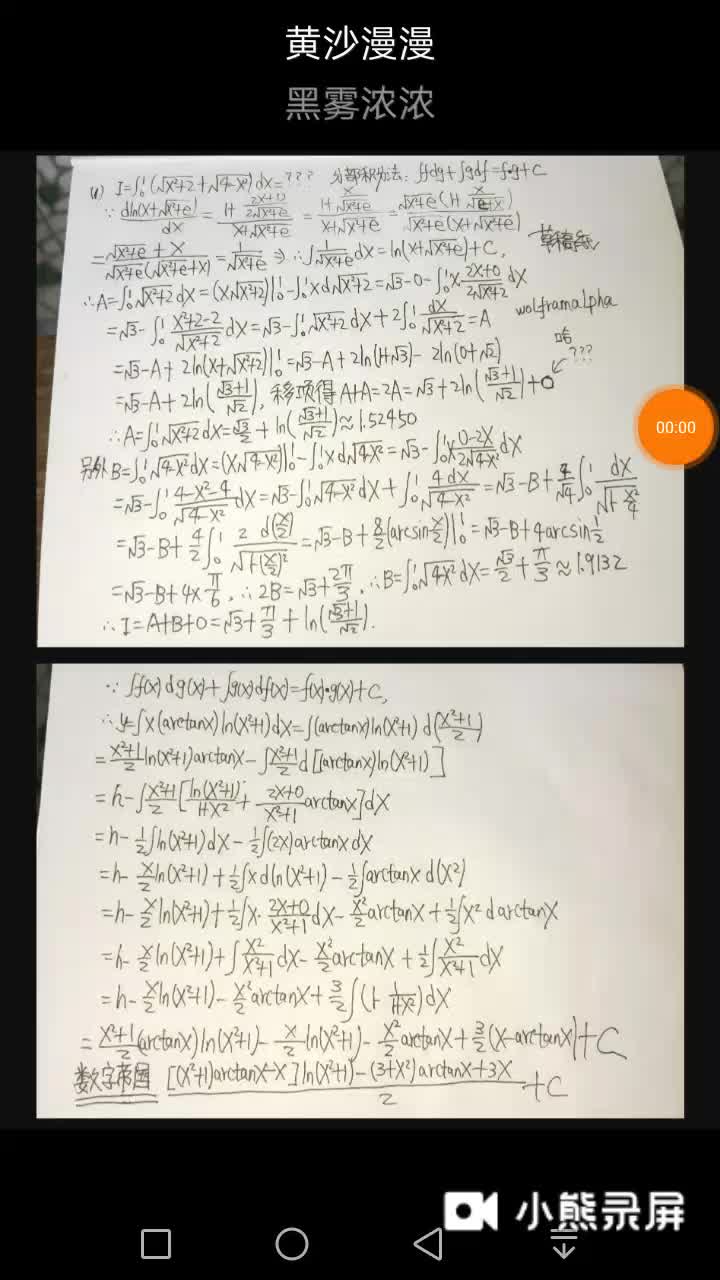 黄沙漫漫
黑雾浓浓
(1) I=∫₀¹(√x²+2+√4-x²)dx=??? 分部积分法: ∫fdg+∫gdf=f·g+C
∵ dln(x+√x²+e)/dx = (1+(2x+0)/(2√x²+e))/(x+√x²+e) = (1+x/√x²+e)/(x+√x²+e) =
= (√x²+e+x)/(√x²+e(√x²+e+x)) = 1/√x²+e ⇒ ∴∫1/√x²+e dx=ln(x+√x²+e)+C, 草稿纸
∴A=∫₀¹√x²+2dx=(x√x²+2)|₀¹-∫₀¹xd√x²+2=√3-0-∫₀¹x·(2x+0)/(2√x²+2)dx
=√3-∫₀¹(x²+2-2)/√x²+2 dx=√3-∫₀¹√x²+2dx+2∫₀¹dx/√x²+2=A wolframalpha
=√3-A+2ln(x+√x²+2)|₀¹=√3-A+2ln(1+√3)-2ln(0+√2) 哈???
=√3-A+2ln((√3+1)/√2), 移项得A+A=2A=√3+2ln((√3+1)/√2)+0
∴A=∫₀¹√x²+2dx=√3/2+ln((√3+1)/√2)≈1.52450
另外B=∫₀¹√4-x²dx=(x√4-x²)|₀¹-∫₀¹xd√4-x²=√3-∫₀¹x(0-2x)/(2√4-x²)dx
=√3-∫₀¹(4-x²-4)/√4-x² dx=√3-∫₀¹√4-x²dx+∫₀¹4dx/√4-x²=√3-B+4/√4∫₀¹dx/√1-x²/4
=√3-B+4/2∫₀¹2d(x/2)/√1-(x/2)²=√3-B+8/2(arcsin x/2)|₀¹=√3-B+4arcsin1/2
=√3-B+4×π/6, ∴2B=√3+2π/3, ∴B=∫₀¹√4-x²dx=√3/2+π/3≈1.9132
∴I=A+B+0=√3+π/3+ln((√3+1)/√2).
∵∫f(x)dg(x)+∫g(x)df(x)=f(x)·g(x)+C,
∴y=∫x(arctanx)ln(x²+1)dx=∫(arctanx)ln(x²+1)d((x²+1)/2)
=(x²+1)/2 ln(x²+1)arctanx-∫(x²+1)/2 d[(arctanx)ln(x²+1)]
=h-∫(x²+1)/2[ln(x²+1)/(1+x²)+(2x+0)/(x²+1)arctanx]dx
=h-1/2∫ln(x²+1)dx-1/2∫(2x)arctanxdx
=h-x/2 ln(x²+1)+1/2∫xdln(x²+1)-1/2∫arctanxd(x²)
=h-x/2 ln(x²+1)+1/2∫x·(2x+0)/(x²+1)dx-x²/2 arctanx+1/2∫x²darctanx
=h-x/2 ln(x²+1)+∫x²/(x²+1)dx-x²/2 arctanx+1/2∫x²/(x²+1)dx
=h-x/2 ln(x²+1)-x²/2 arctanx+3/2∫(1-1/(1+x²))dx
=(x²+1)/2(arctanx)ln(x²+1)-x/2 ln(x²+1)-x²/2 arctanx+3/2(x-arctanx)+C
数字帝国 ([(x²+1)arctanx-x]ln(x²+1)-(3+x²)arctanx+3x)/2+C
00:00
小熊录屏